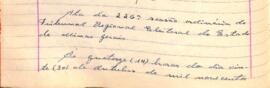 Ata da 226ª sessão ordinária do
Tribunal Regional Eleitoral do Estado
de Minas Gerais
Às quatorze (14) horas do dia vin-
te (20) de outubro de mil novecentos